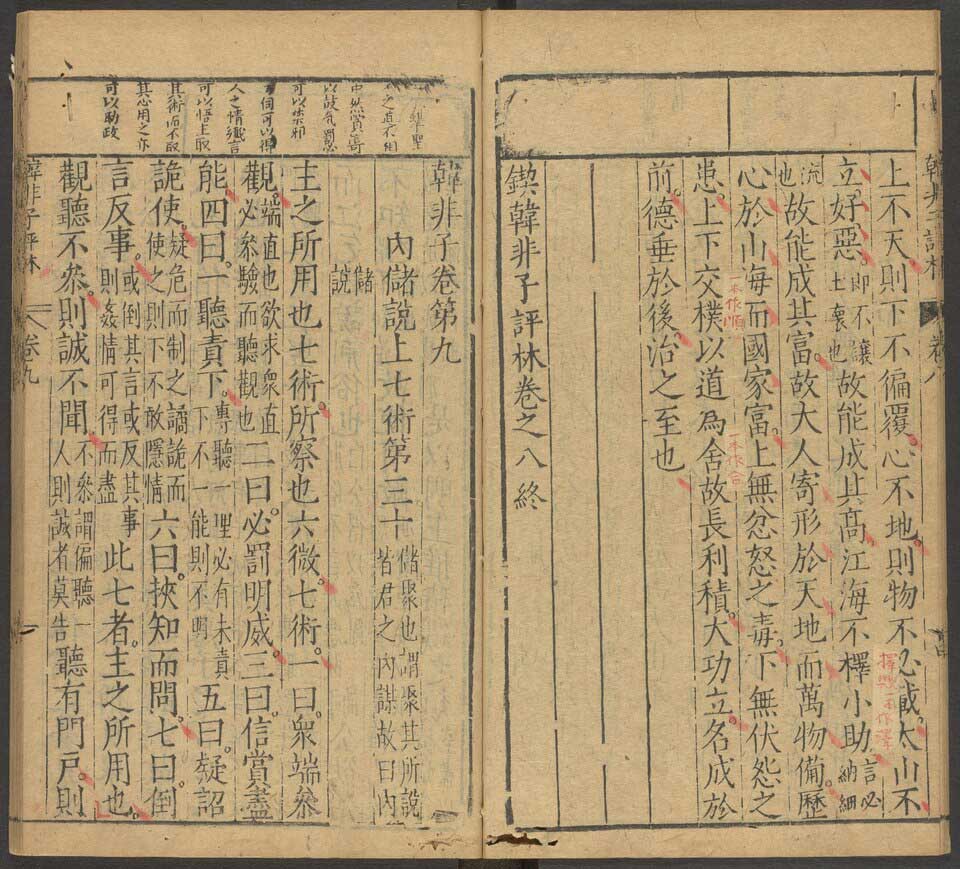 上不天則下不徧覆心不地則物不必載太山不
立好惡即不讓土壤也故能成其高江海不擇小助言必納細
流也故能成其富故大人寄形於天地而萬物備歷
心於山海而國家富上無忿怒之毒下無伏怨之
患上下交樸以道為舍故長利積大功立名成於
前德垂於後治之至也
鍥韓非子評林卷之八終
韓非子卷第九
內儲說上七術第三十儲聚也謂聚其所說皆君之內謀故曰內
儲說
主之所用也七術所察也六微七術一曰眾端參
觀端直也欲求眾直必參驗而聽觀也二曰必罰明威三曰信賞盡
能四曰一聽責下專聽一理必有未責下不一能則不明五曰疑詔
詭使疑危而制之譎詭而使之則下不敢隱情六曰挾知而問七曰倒
言反事或倒其言或反其事則姦情可得而盡此七者主之所用也
觀聽不參則誠不聞不參謂偏聽一人則誠者莫告聽有門戶則
可以禁邪
人之情徵言
可以悟主取
其術而不取
其心用之亦
可以助政
韓非子評林
卷九